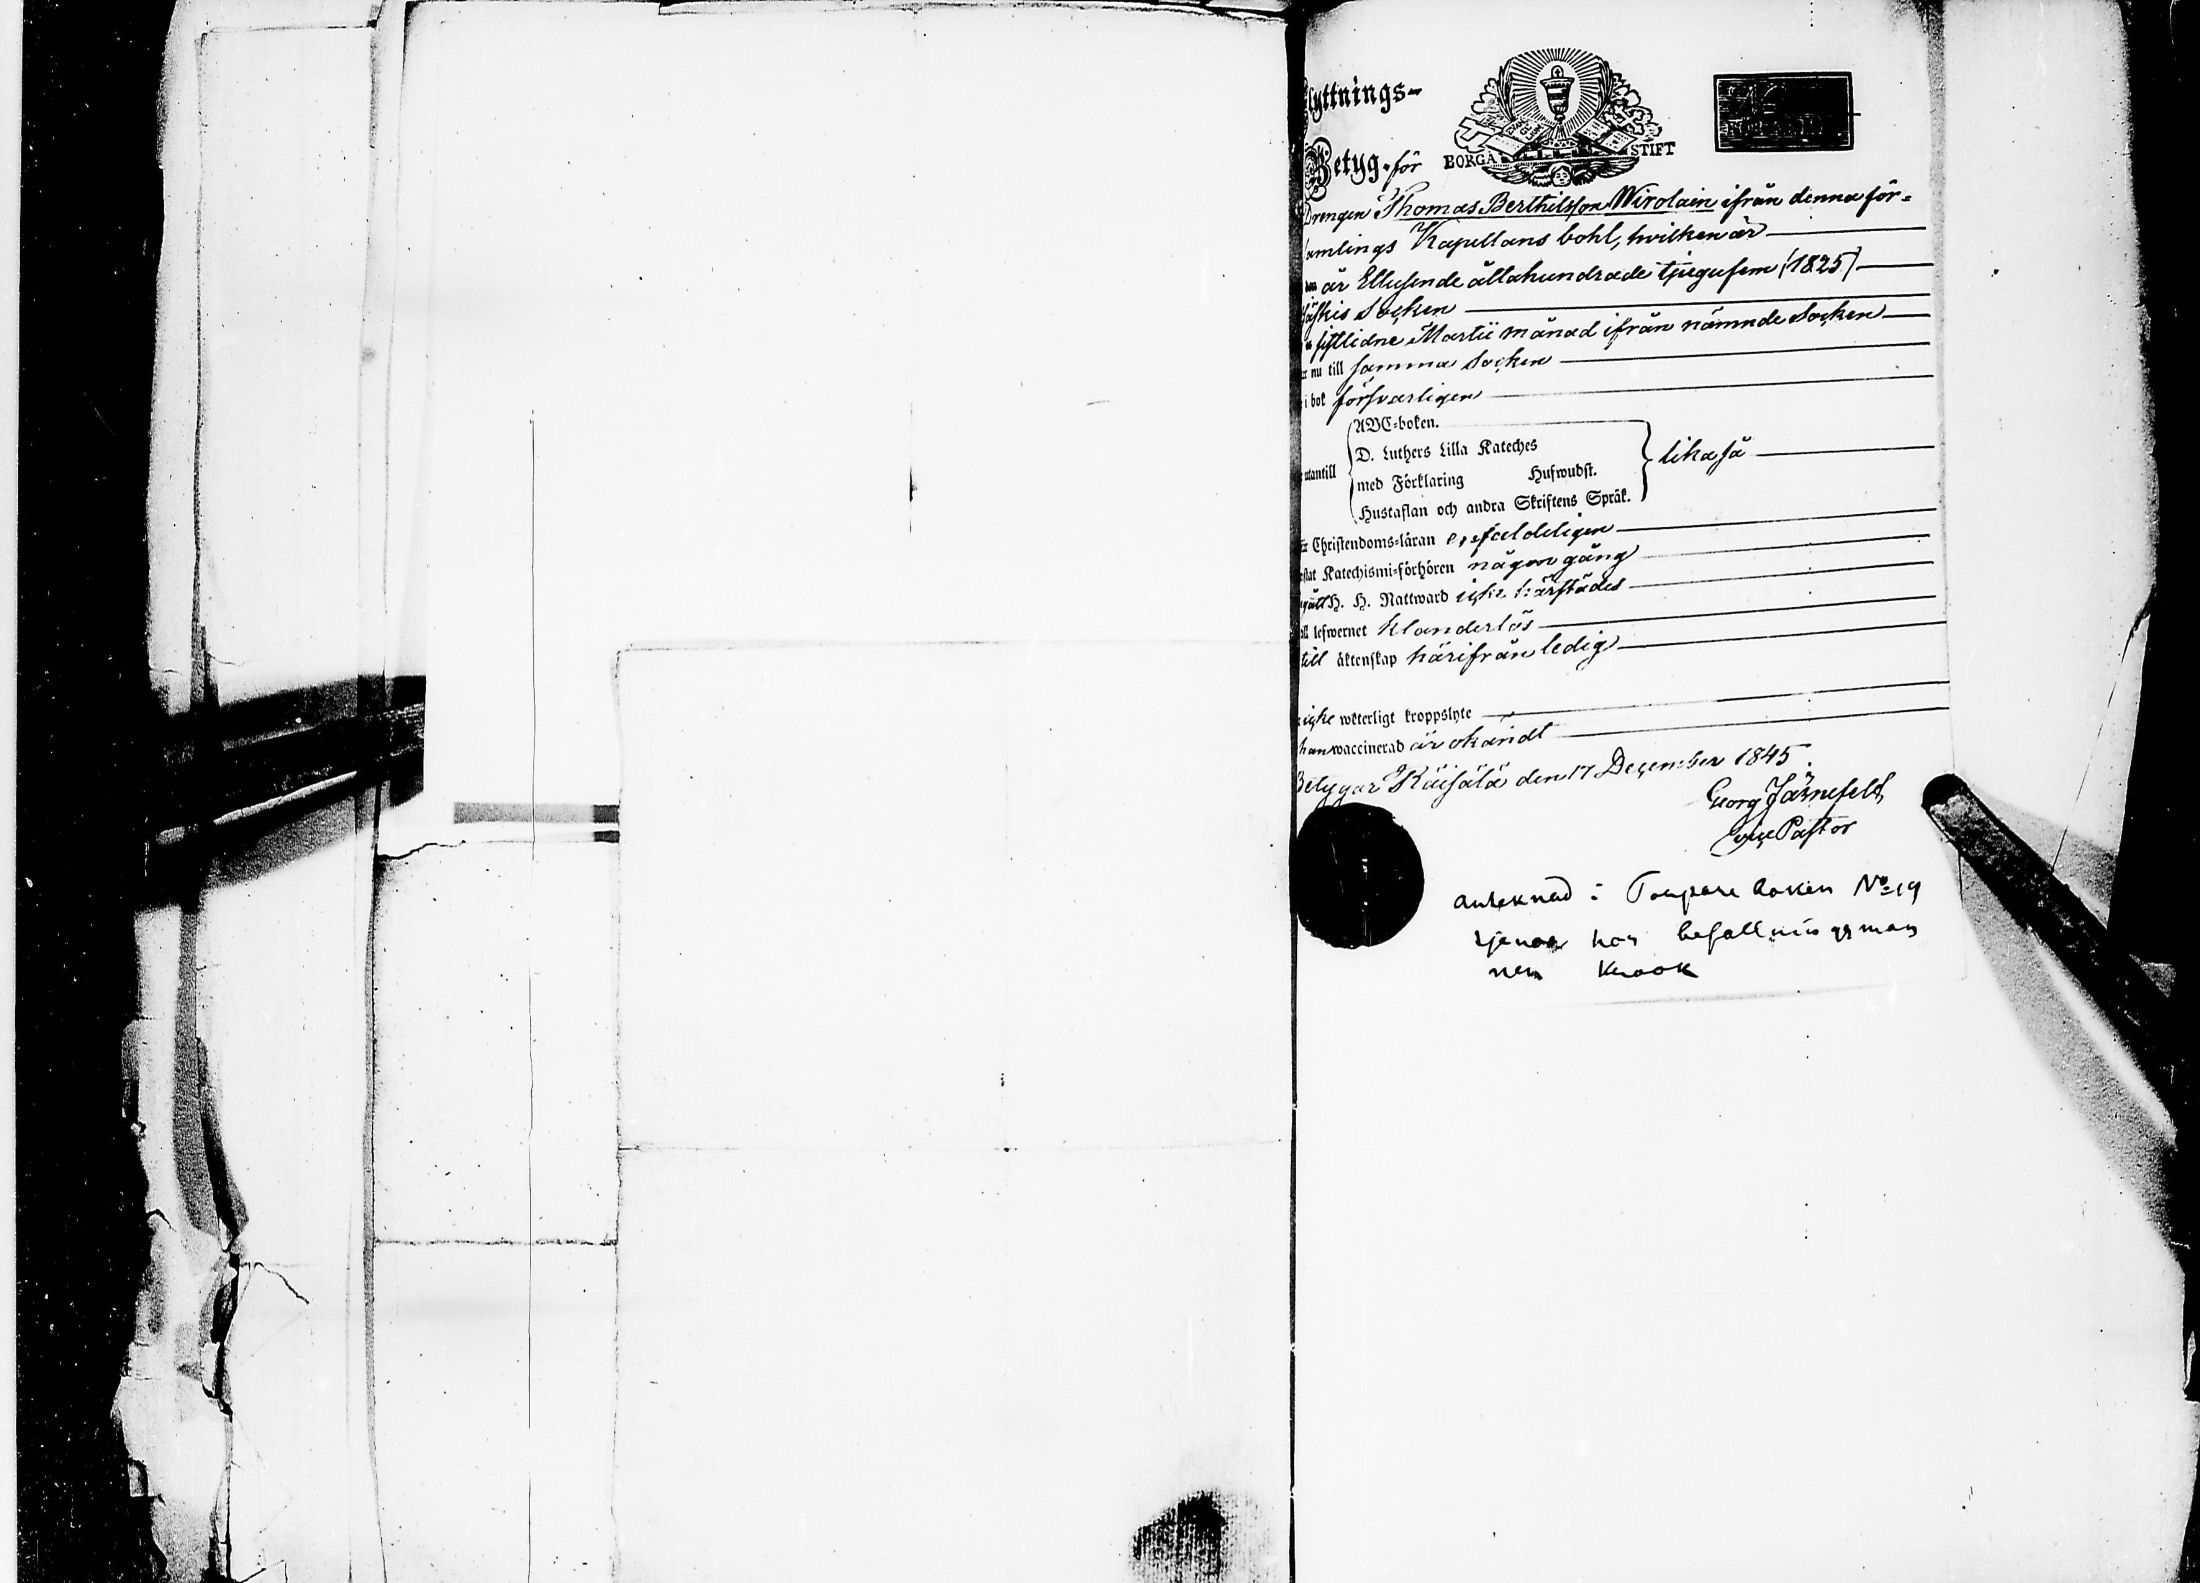 lyttnings-
BORGÅ STIFT
Betyg för
Drengen Thomas Berthilsson Wirolain ifrån denna för-
amlings Kapellans bohl, hvilken är
år Ettusende åttahundrade tjugufem (1825)
äskis Socken
sistlidne Martii månad ifrån nämnde Socken
nu till samma Socken
i bok försvarligen
ABC-boken.
D. Luthers Lilla Kateches
med Förklaring Hufwudst.
utantill
Hustaflan och andra Skriftens Språk.
likaså
Christendoms-läran enfaldeligen
stat Katechismi-förhören någon gång
gått H. H. Nattward icke härstädes
lefwernet klanderlös
till äktenskap härifrån ledig
icke weterligt kroppslyte
han vaccinerad är okändt
Betygar Räisälä den 17 December 1845.
Georg Järnefelt
Vice Pastor
anteknad i boken No 19
tjenar hos befallningsman
nen Krook